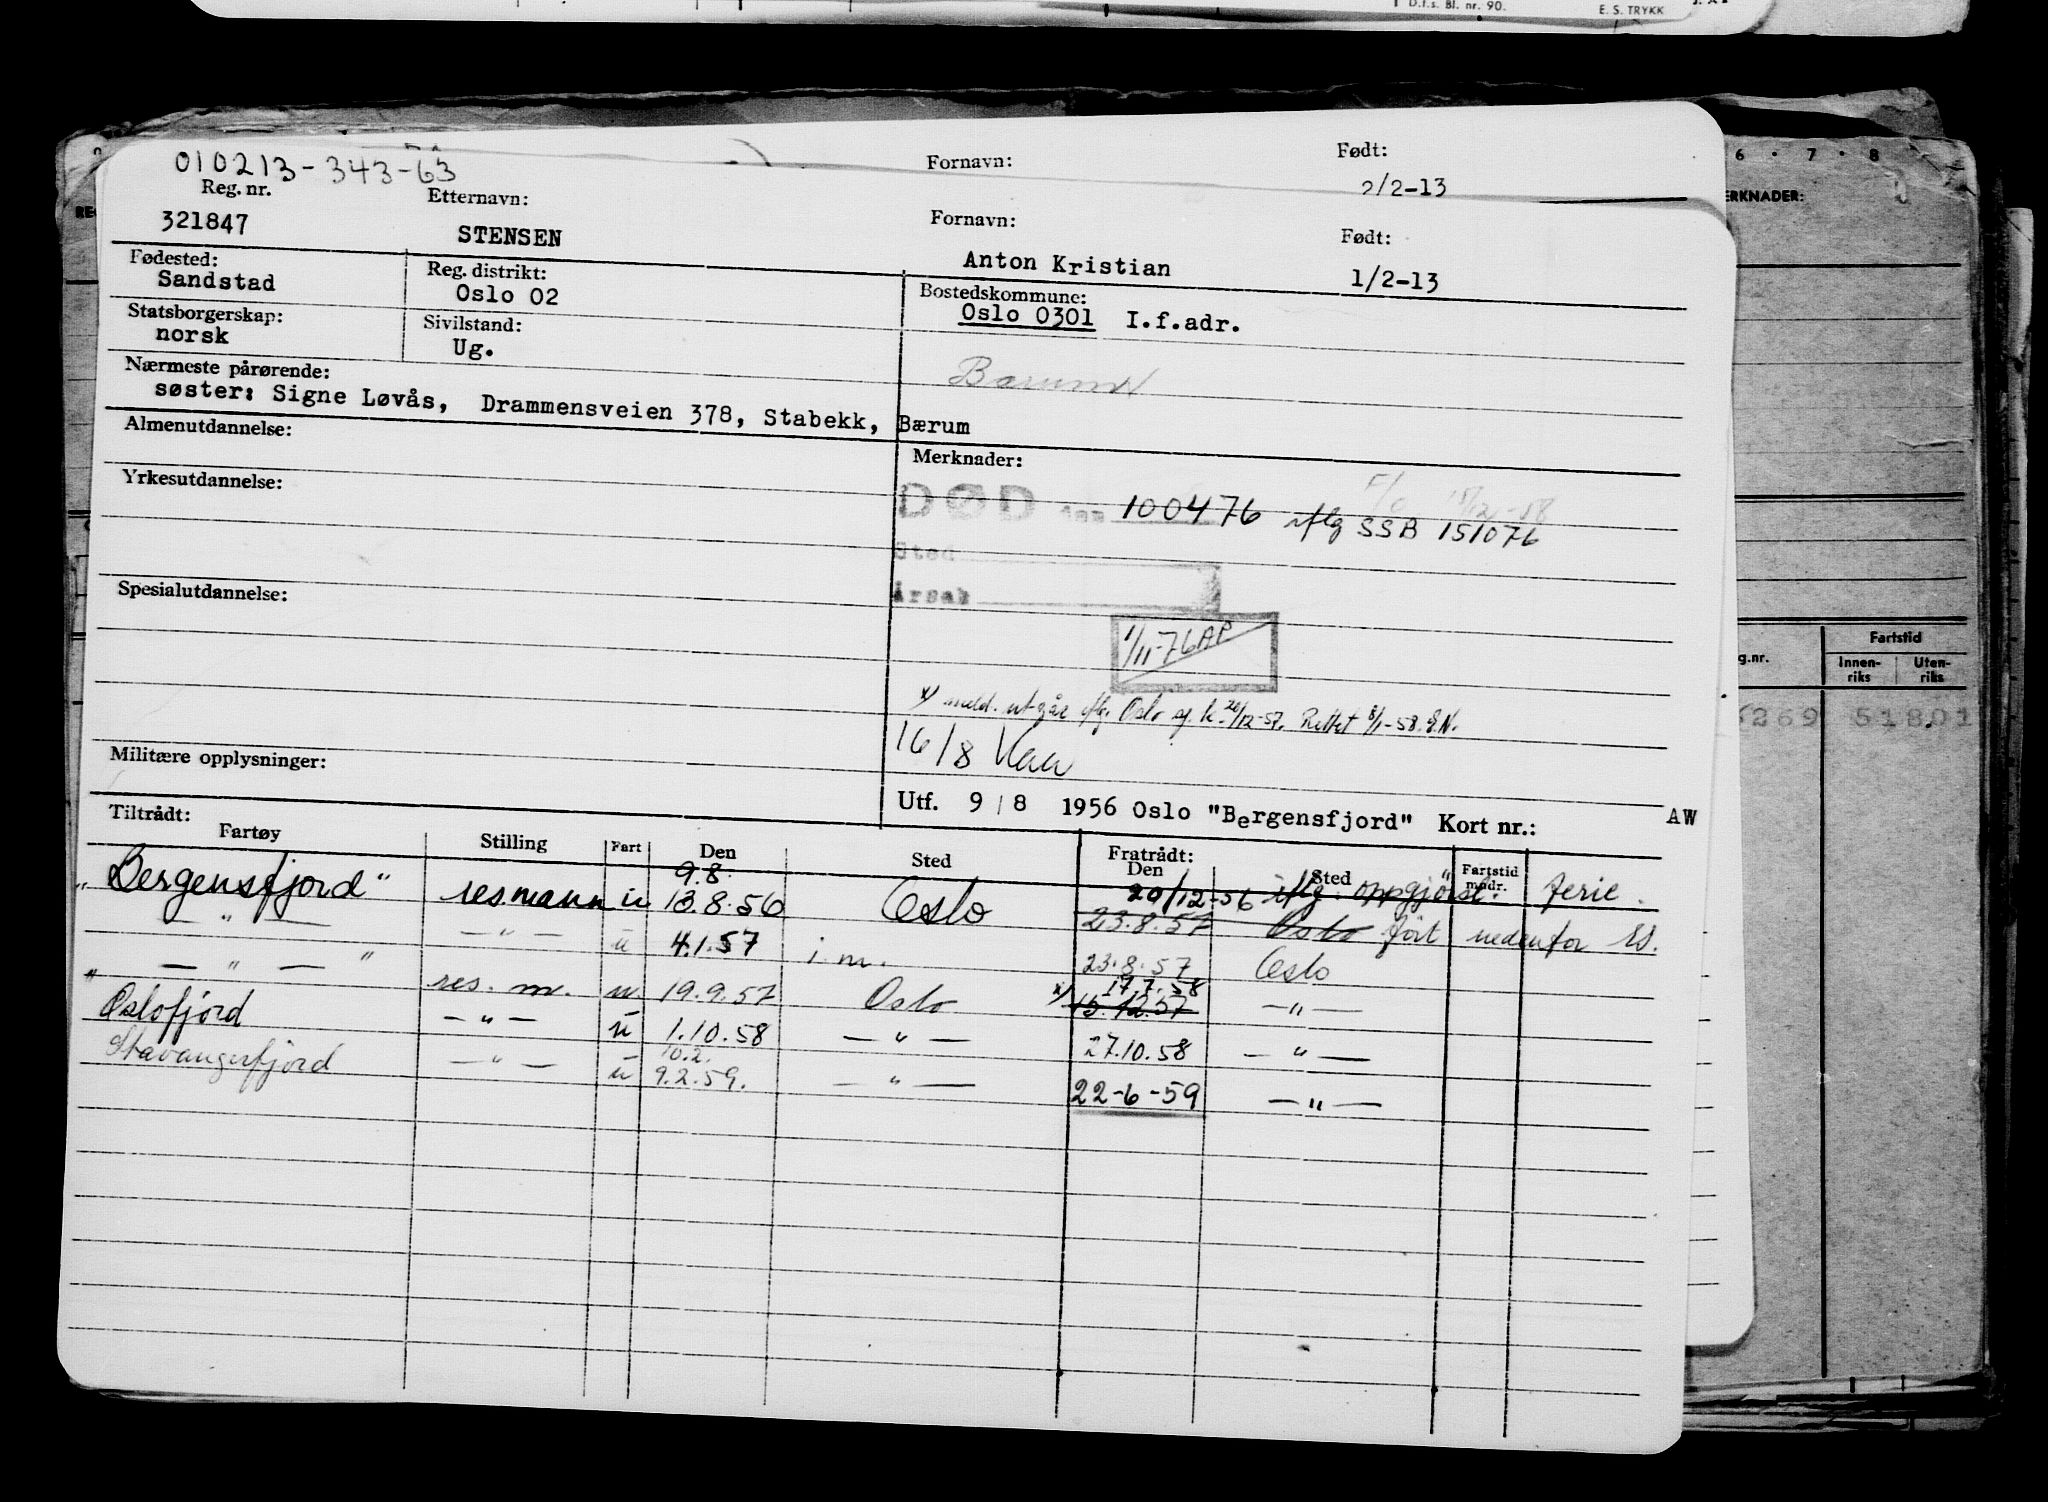 D.f.s. Bl. nr. 90. E. S. TRYKK
Fornavn: Født:
2/2-13
6 · 7 · 8
010213-343-63
Reg. nr. Etternavn: Fornavn: Født:
321847 STENSEN Anton Kristian 1/2-13
Fødested: Reg. distrikt: Bostedskommune:
Sandstad Oslo 02 Oslo 0301 I.f.adr.
Statsborgerskap: Sivilstand:
norsk Ug.
Nærmeste pårørende:
søster: Signe Løvås, Drammensveien 378, Stabekk, Bærum
Almenutdannelse: Merknader:
Yrkesutdannelse:
DØD 100476 iflg SSB 151076
15/12-58
Sted
Årsak
Spesialutdannelse:
1/11-76 AP
x) meld. utgår iflg. Oslo sj. k. 20/12-57. Rettet 8/1-58. E.N.
16/8
Militære opplysninger:
Utf. 9/8 1956 Oslo "Bergensfjord" Kort nr.: AW
Tiltrådt: Fratrådt:
Fartøy Stilling Fart Den Sted Den Sted Fartstid mndr.
9.8.
"Bergensfjord" resmann u 13.8.56 Oslo 20/12-56 iflg. oppgjørsl. ferie.
— " — — " — u 4.1.57 i.m. 23.8.57 Oslo ført nedenfor
— " — " 23.8.57 Oslo
17.7.58
" res. m. u. 19.9.57 Oslo x) 15.12.57 — " —
Oslofjord — " — u 1.10.58 — " — 27.10.58 — " —
10.2.
Stavangerfjord — " — u 9.2.59. — " — 22-6-59 — " —
ERKNADER:
g.nr. Fartstid
Innenriks Utenriks
269 51801